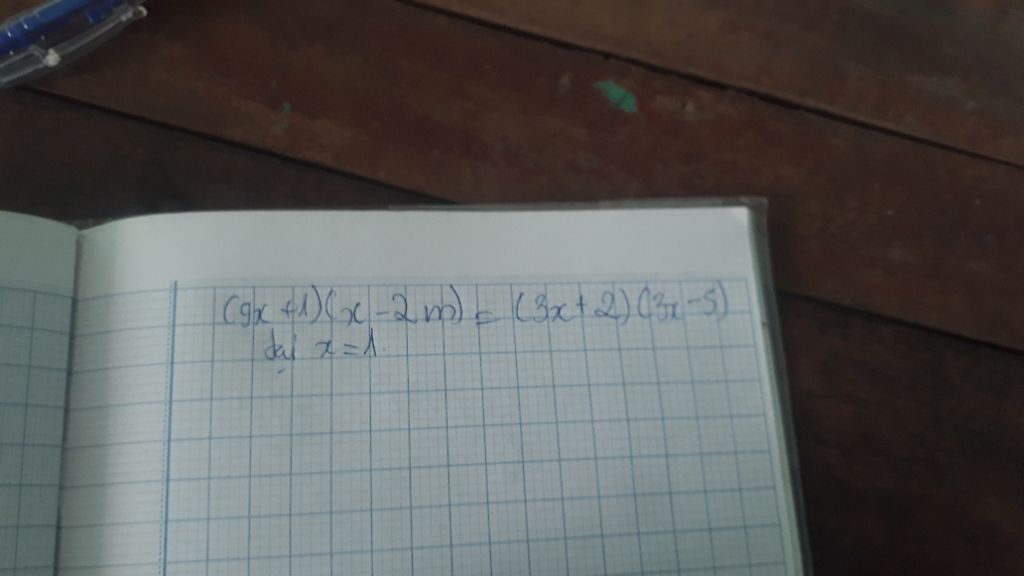 (9x+1)(x-2m) = (3x+2)(3x-5)
x=1.